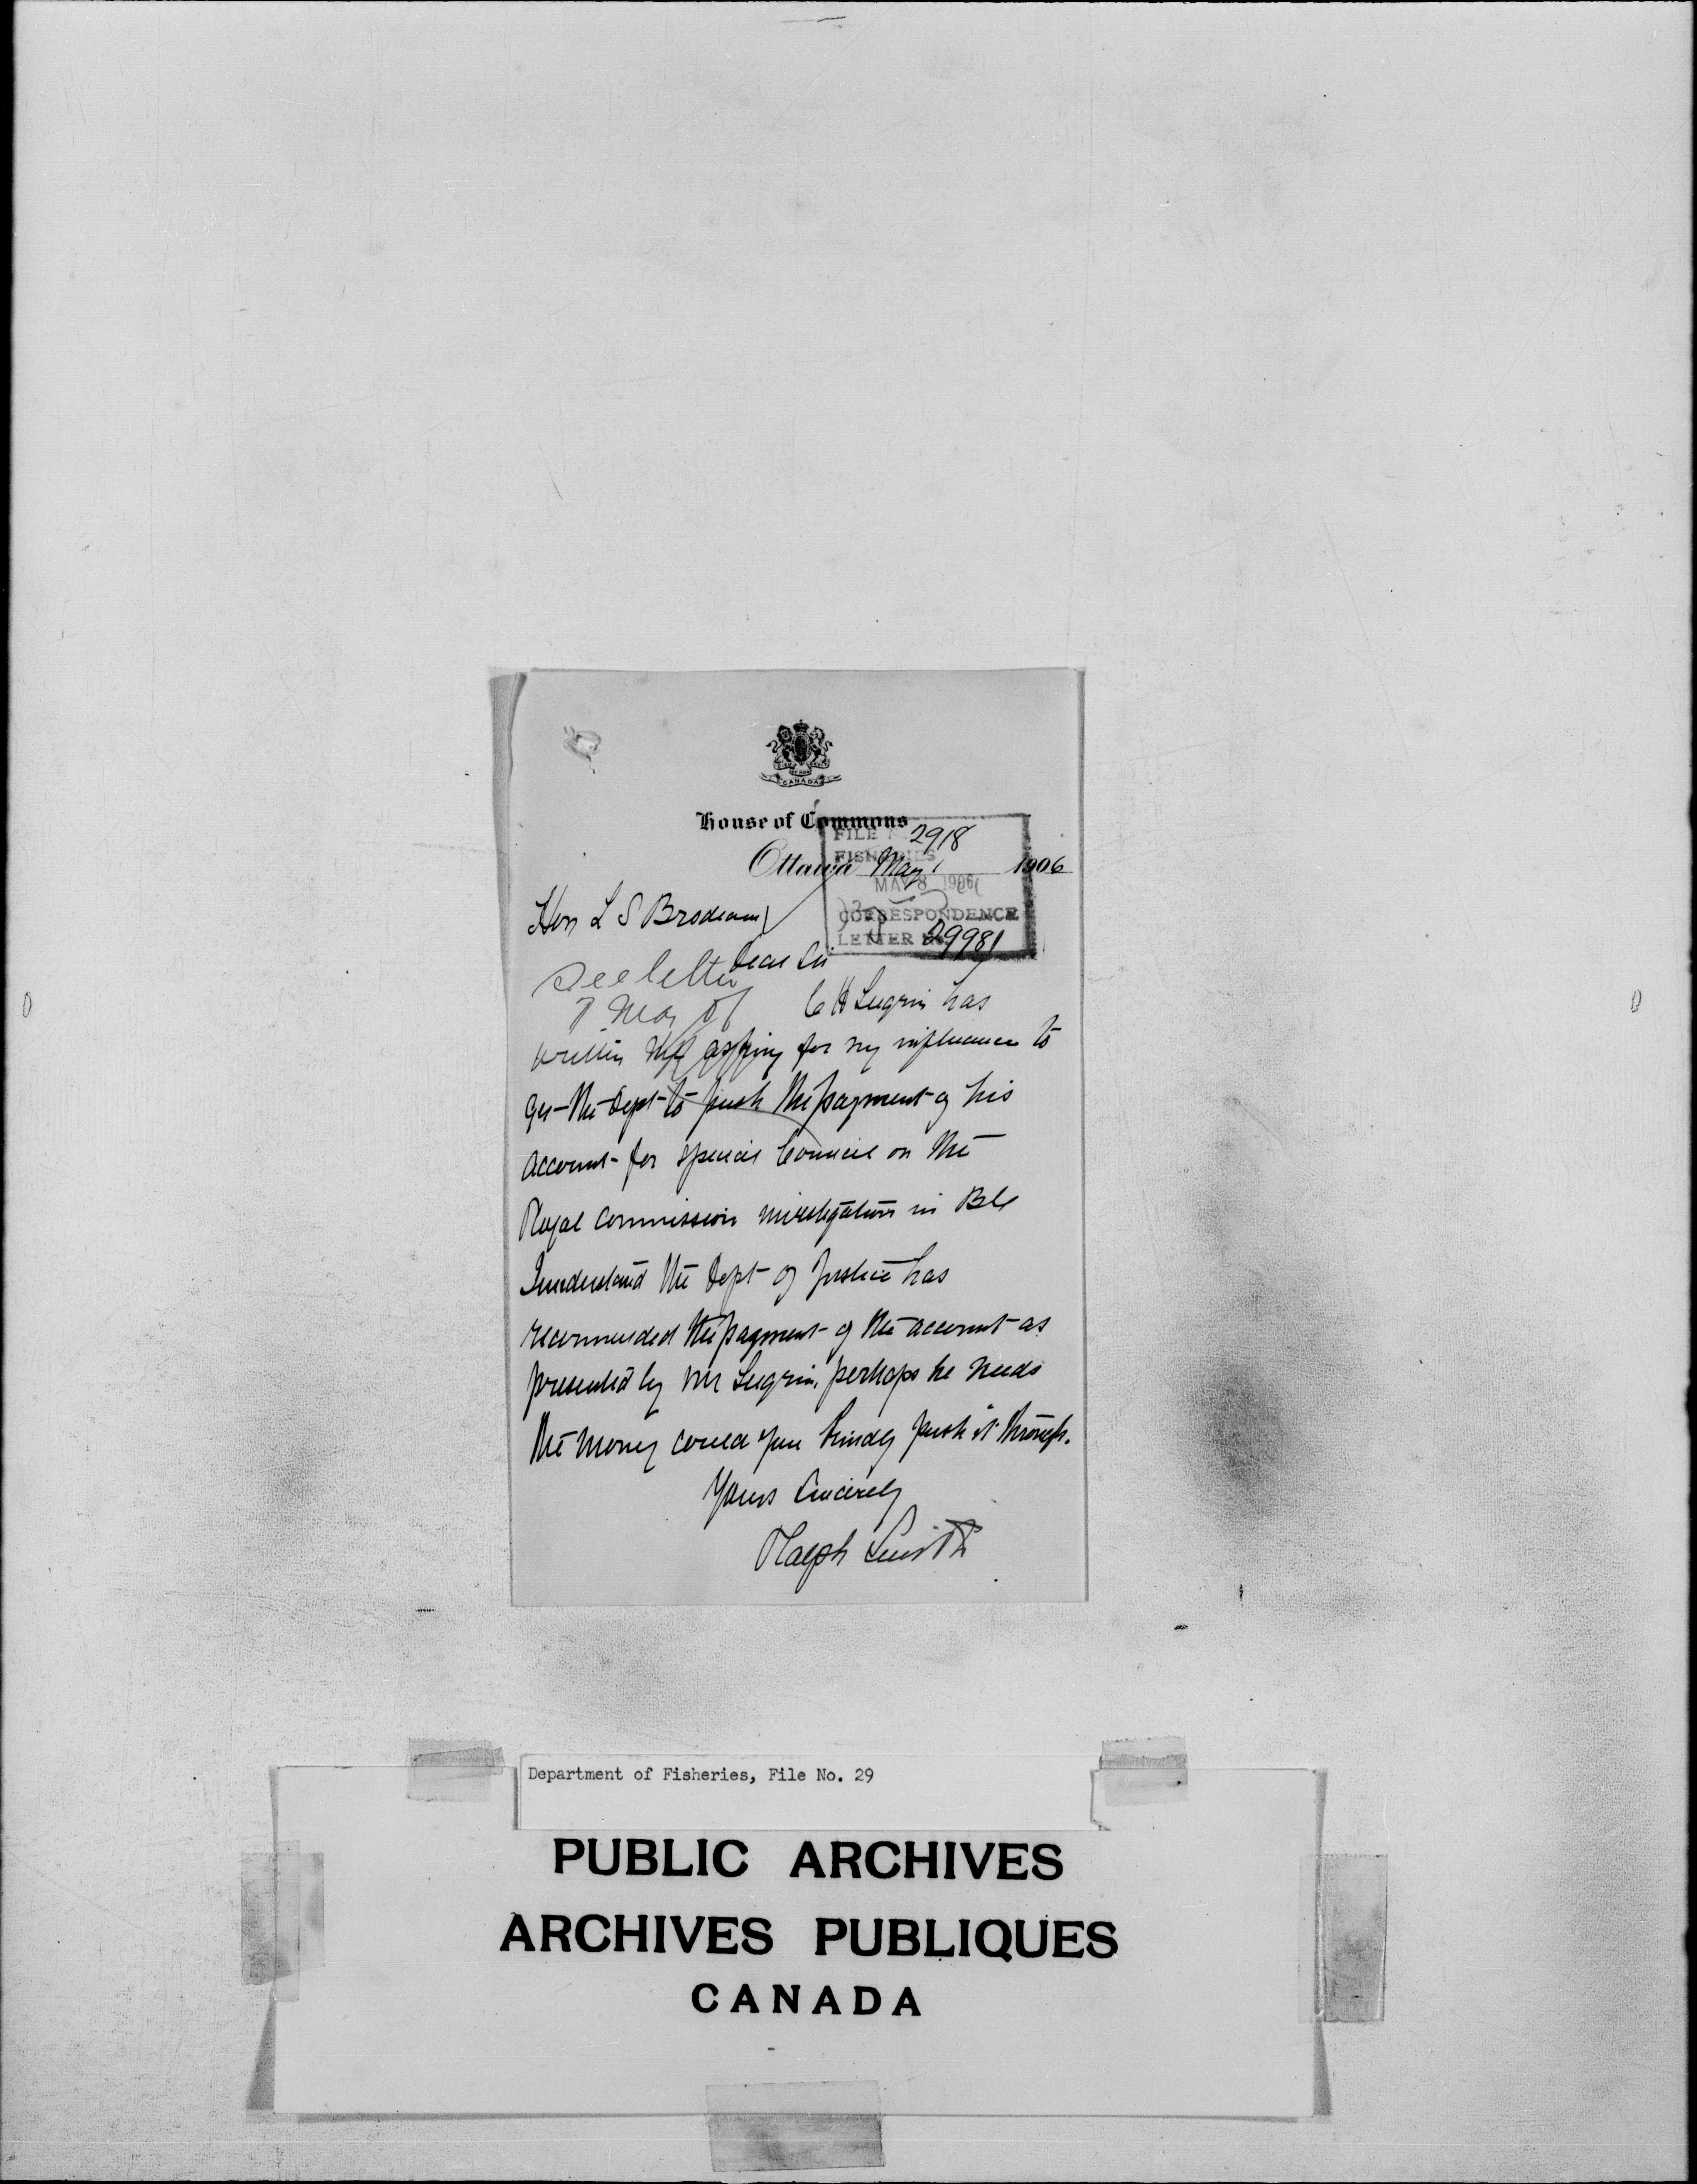 CANADA
House of Commons
FILE 2918
FISHERIES
Ottawa May 1 1906
MAY 8 1906
CORRESPONDENCE
LETTER No. 29981
Hon L S Brodeur
Dear Sir
See letter
7 May 06
C H Lugrin has
written me asking for my influence to
get the Dept to push the payment of his
account for special Council on the
Royal Commission investigation in BC
I understand the Dept of Justice has
recommended the payment of the account as
presented by Mr Lugrin, perhaps he needs
the money could you kindly push it through.
Yours Sincerely
Ralph Smith
Department of Fisheries, File No. 29
PUBLIC ARCHIVES
ARCHIVES PUBLIQUES
CANADA